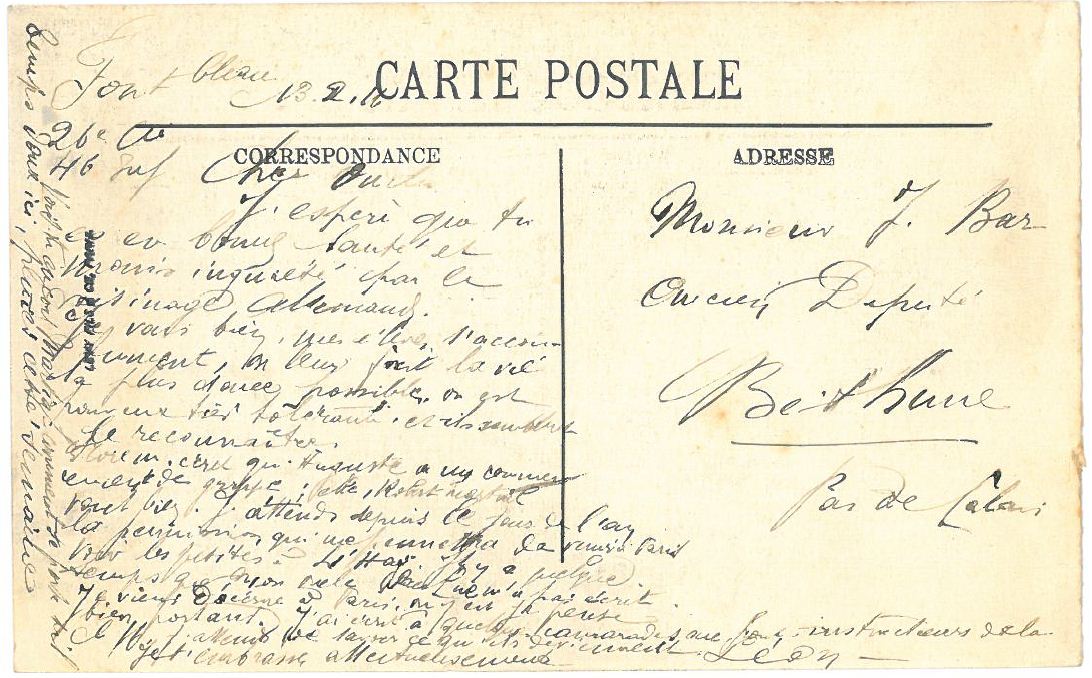 CARTE POSTALE
Font bleau
13.2.16
26e Cie
46 Inf
CORRESPONDANCE
ADRESSE
Cher
J'espère que tu
es en bonne santé et
moins inquiété par le
voisinage Allemand.
Je vais bien, mes élèves s'accou-
tument, on leur fait la vie
la plus douce possible, on est
pour eux très tolérants et ils semblent
le reconnaître.
qui Auguste a un commen
cement de grippe; Robert
vont bien. J'attends depuis le jour de l'an
la permission qui me permettra de venir à Paris
voir les petites. Il y a quelque
temps que mon oncle ne m'a pas écrit.
Je viens d'écrire à Paris, on y est je pense
bien portant. J'ai écrit à quelques camarades instructeurs de la
J'attends de savoir ce qu'ils deviennent.
Je t'embrasse affectueusement
Léon
Monsieur J. Bar
Ancien Député
Béthune
Pas de Calais
temps doux ici, pluies cette semaine
comment se porte t'il